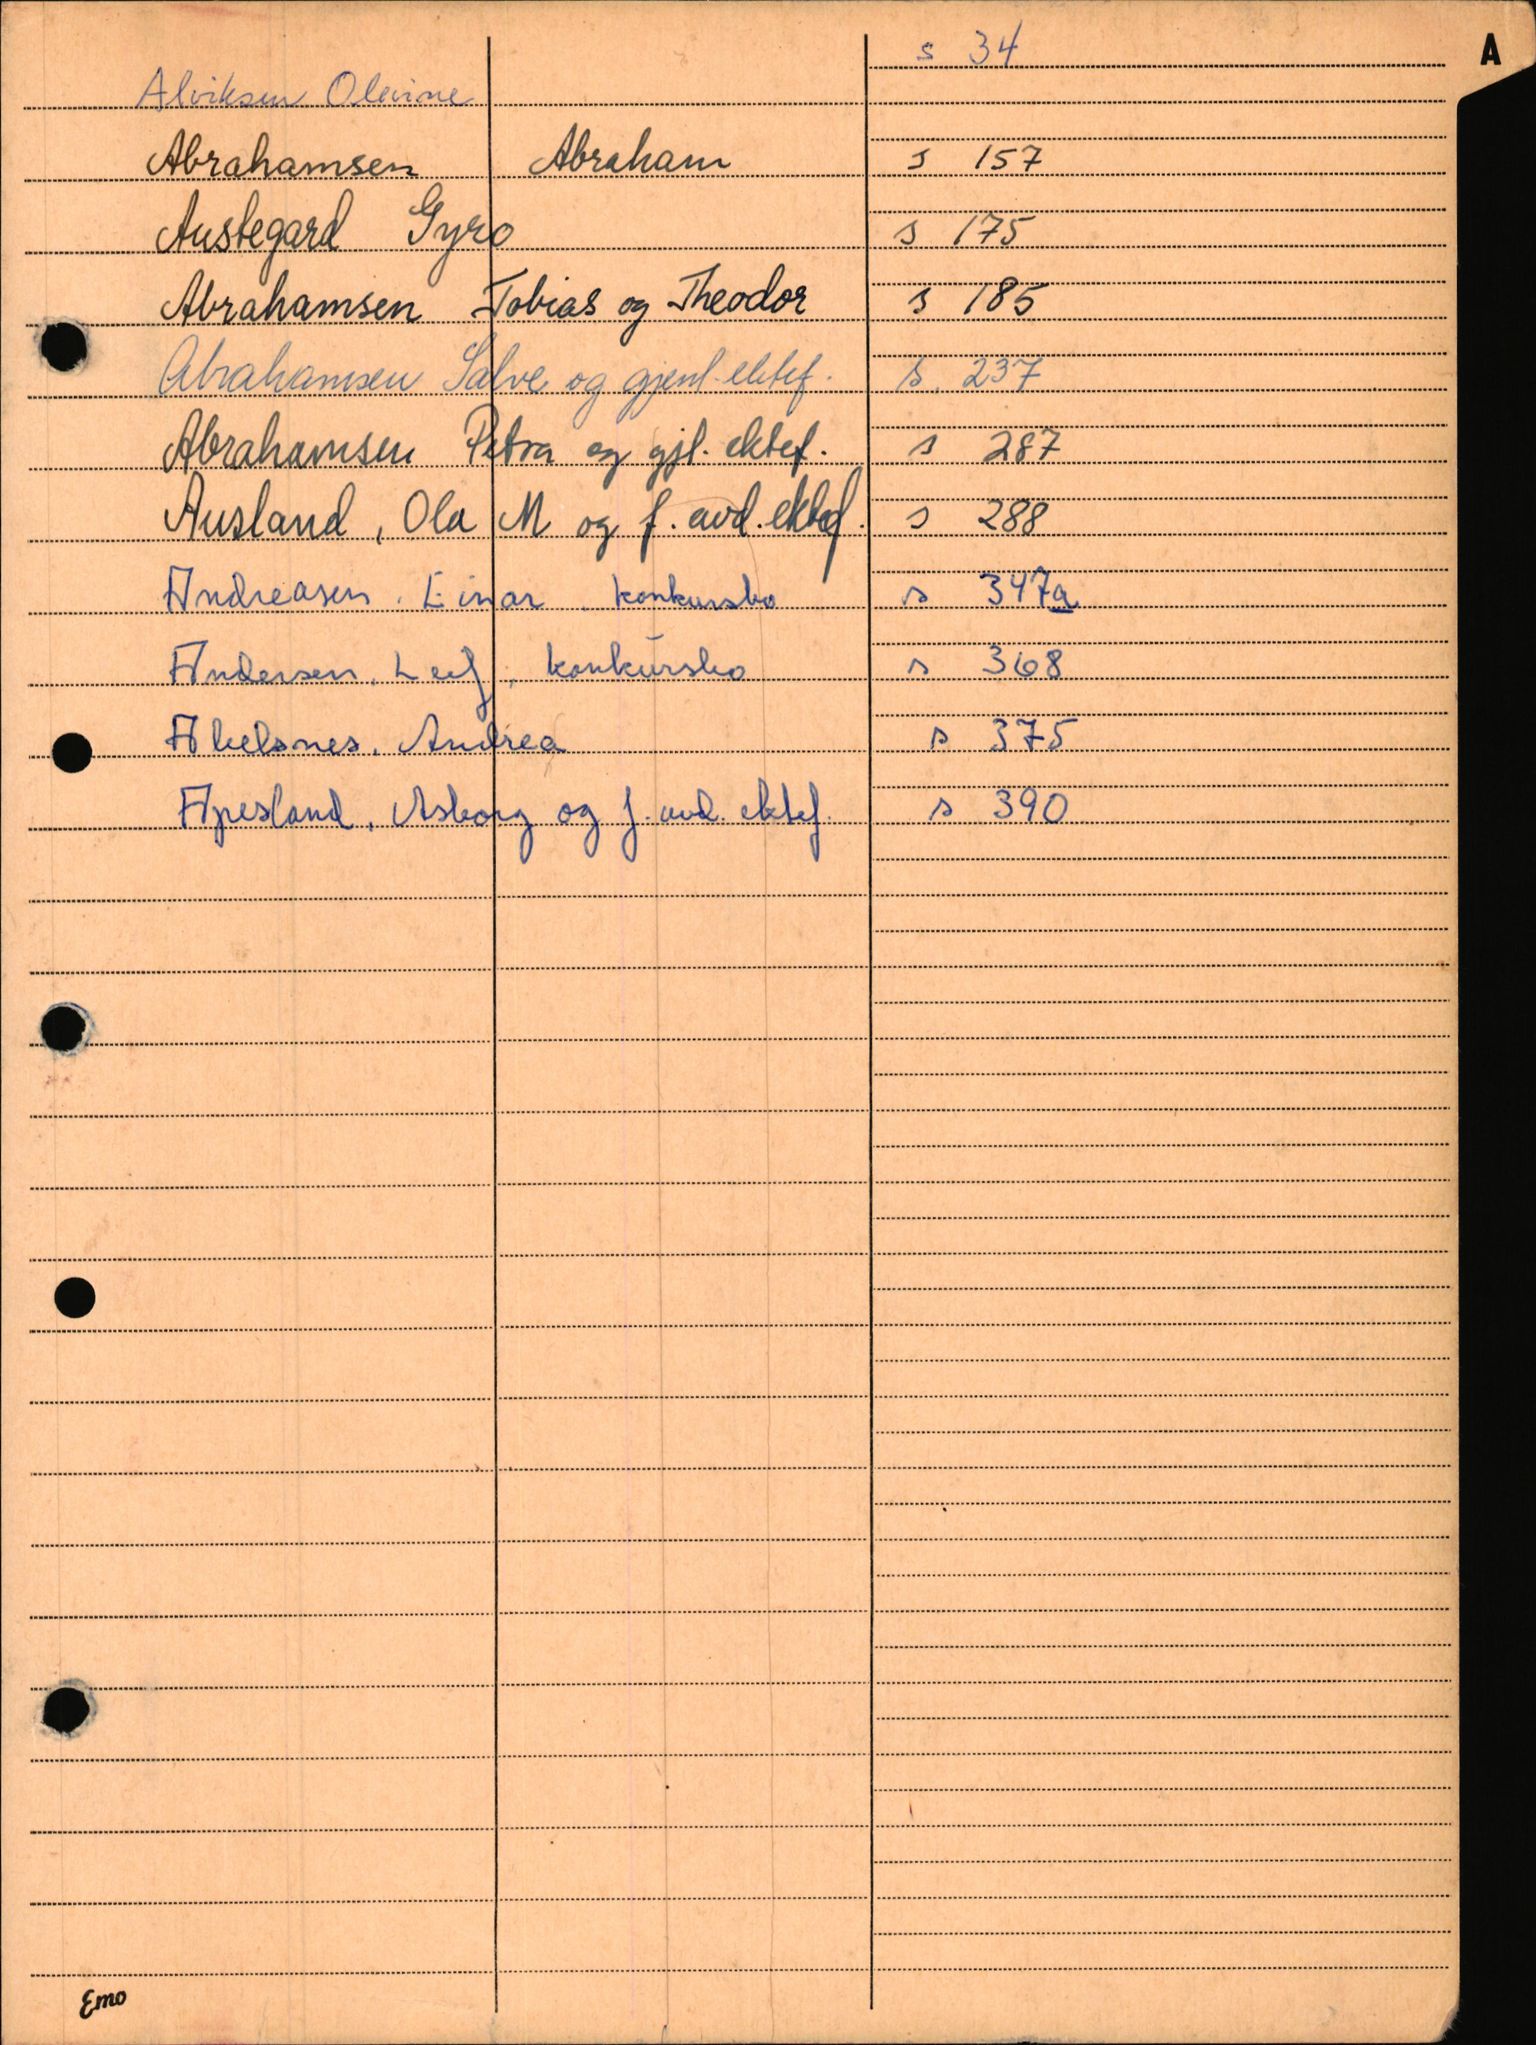 A
Alviksen Olevine s 34
Abrahamsen Abraham s 157
Austegard Gyro s 175
Abrahamsen Tobias og Theodor s 185
Abrahamsen Salve og gjenl. ektef. s. 237
Abrahamsen Petra og gjl. ektef. s 287
Ausland, Ola M og f. avd. ektef. s 288
Andreasen. Einar. konkursbo s 347a
Andersen, Leif, konkursbo s 368
Abelsnes, Andrea s 375
Apesland, Asborg og f. avd. ektef. s 390
Emo